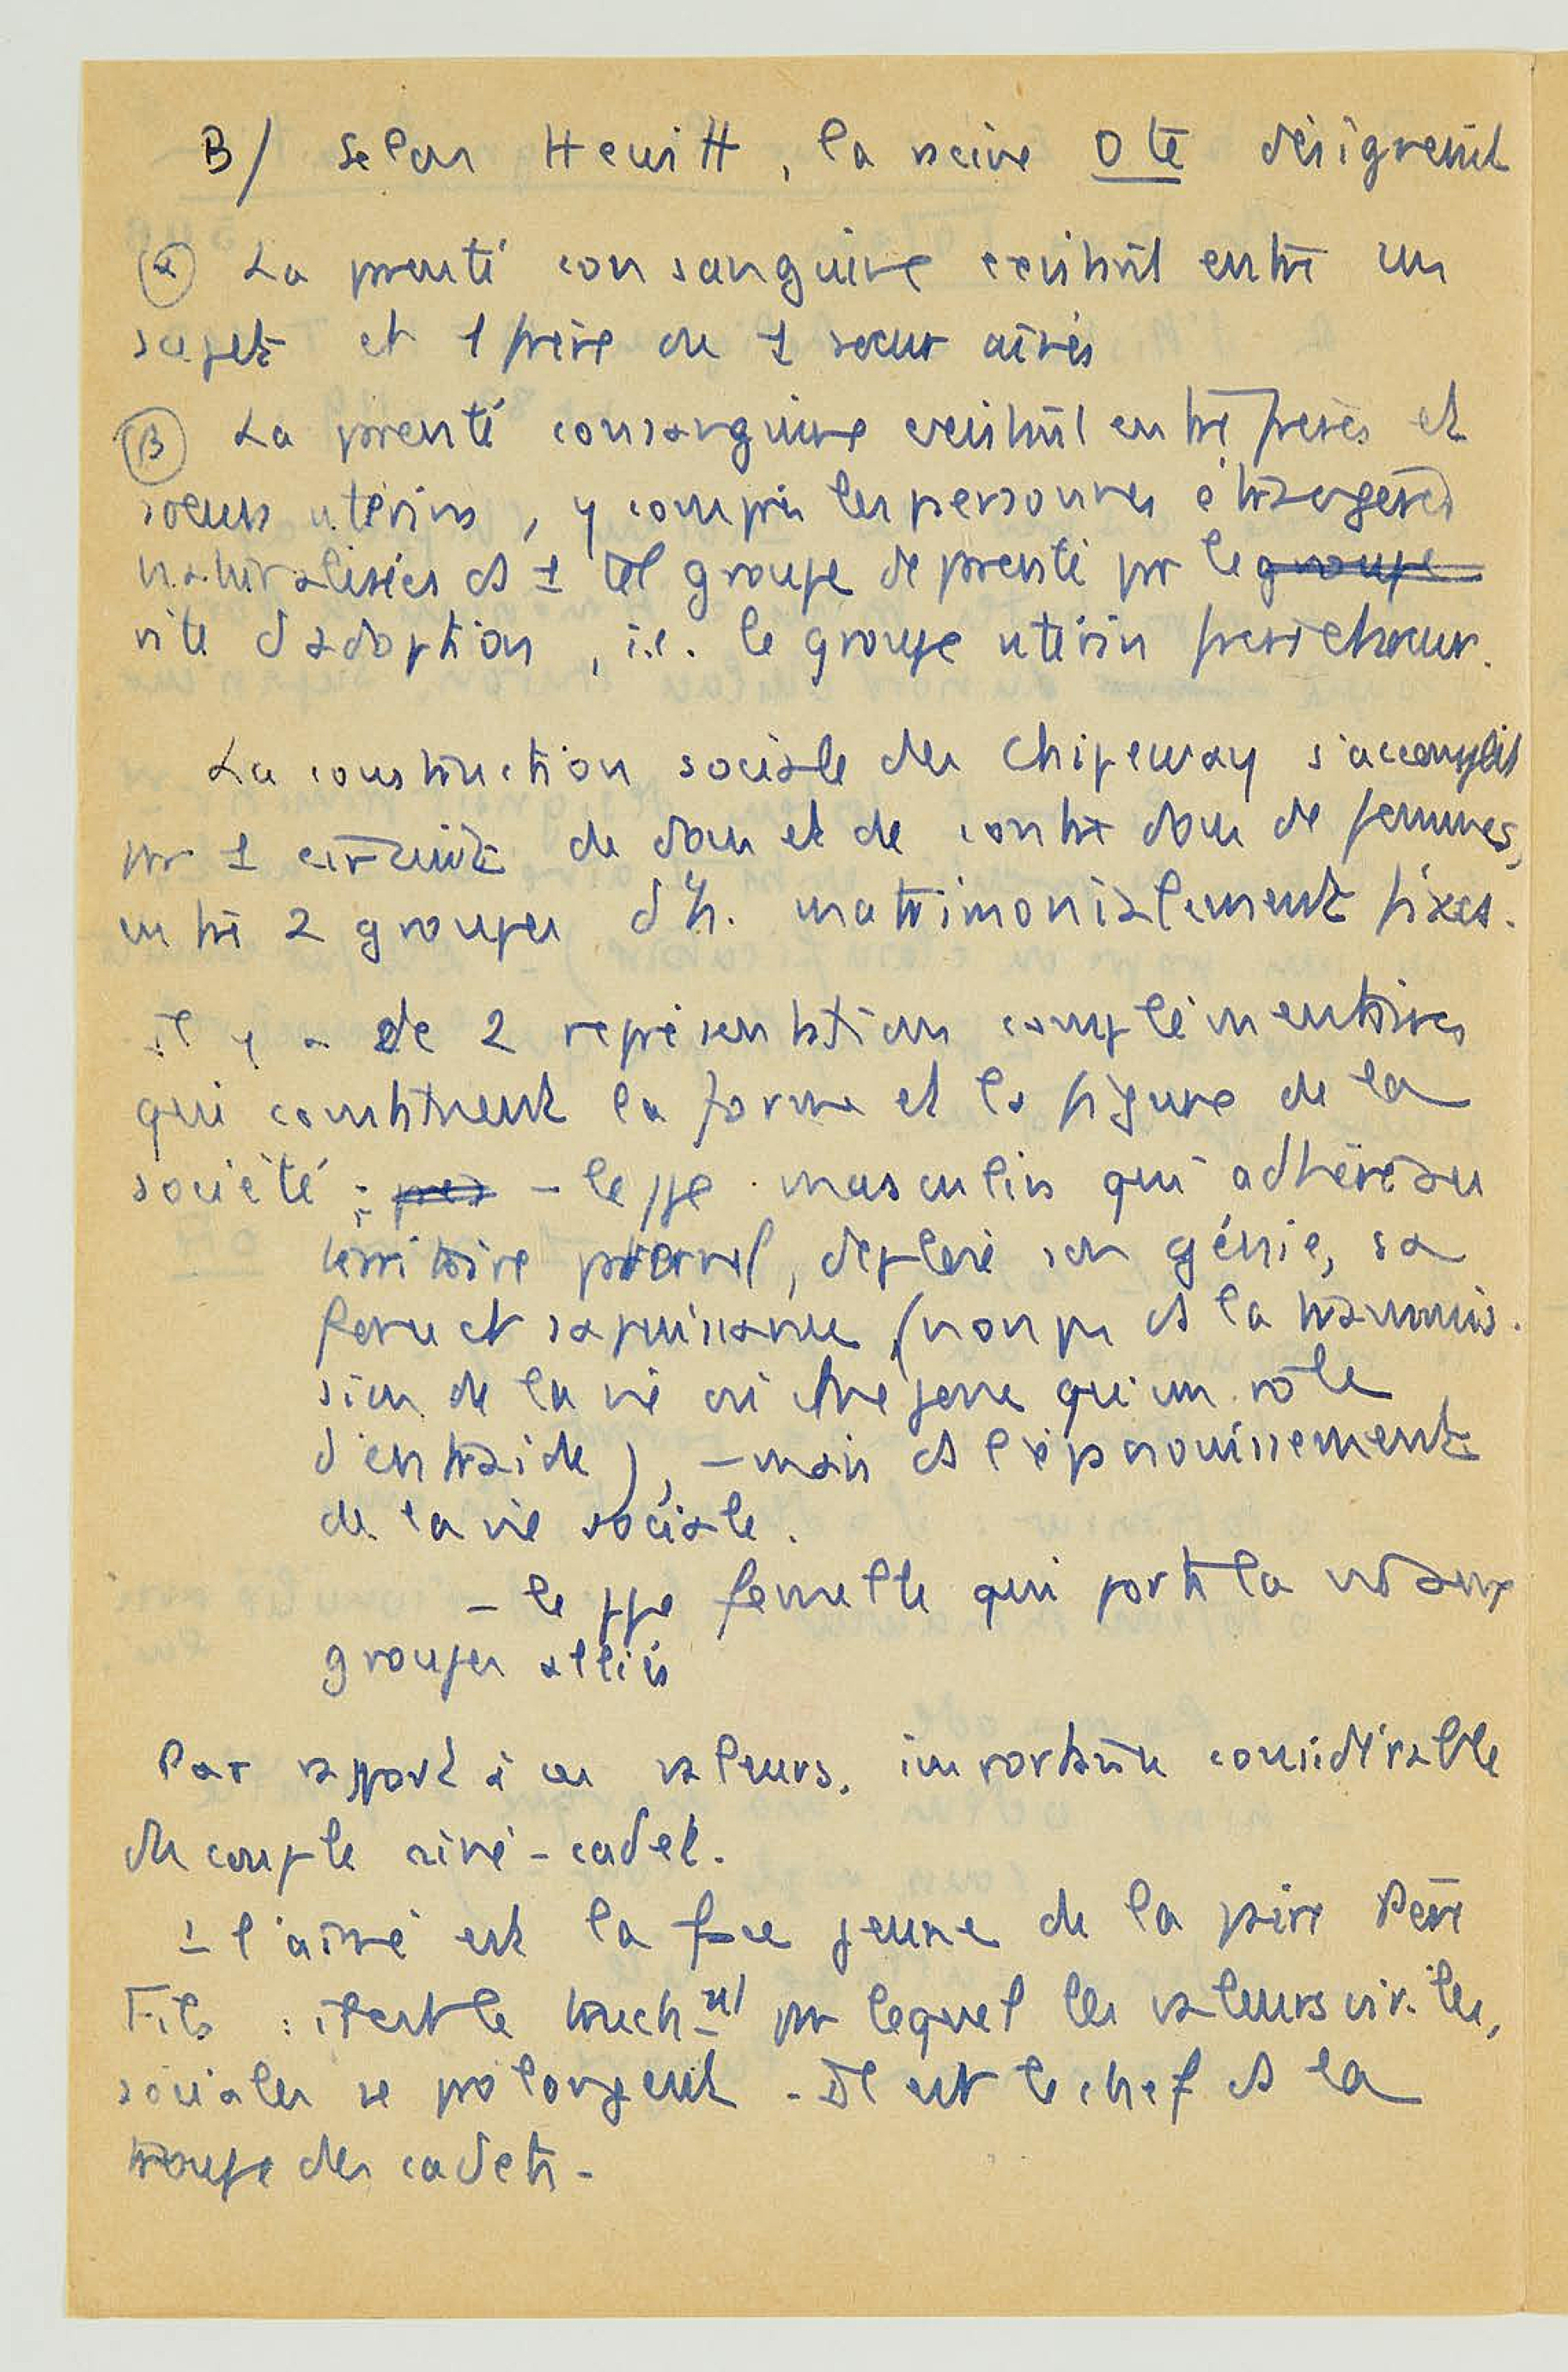 B/ Selon Hewitt, la racine Ote désignerait
(α) La prenté consanguine existant entre un
sujet et 1 frère ou 1 sœur aînés
(β) La prenté consanguine existant entre frères et
sœurs utérins, y compris les personnes étrangères
naturalisées ds 1 tel groupe de prenté pr le groupe
rite d'adoption, i.e. le groupe utérin frère et sœur.
La construction sociale des Chipeway s'accomplit
pr 1 circuit de don et de contre don de femmes,
entre 2 groupes d'h. matrimonialement fixes.
Il y a de 2 représentations complémentaires
qui constituent la forme et la figure de la
société : - le ppe masculin qui adhère au
territoire paternel, déploie son génie, sa
force et sa puissance (non pas ds la transmis-
sion de la vie où il ne joue qu'un rôle
d'entraide), - mais ds l'épanouissement
de la vie sociale.
- le ppe femelle qui porte la vie aux
groupes alliés
Par rapport à ces valeurs, importance considérable
du couple aîné-cadet.
1 l'aîné est la face jeune de la paire Père
Fils : il est le truchnt pr lequel les valeurs viriles,
sociales se prolongent - Il est le chef ds la
troupe des cadets -